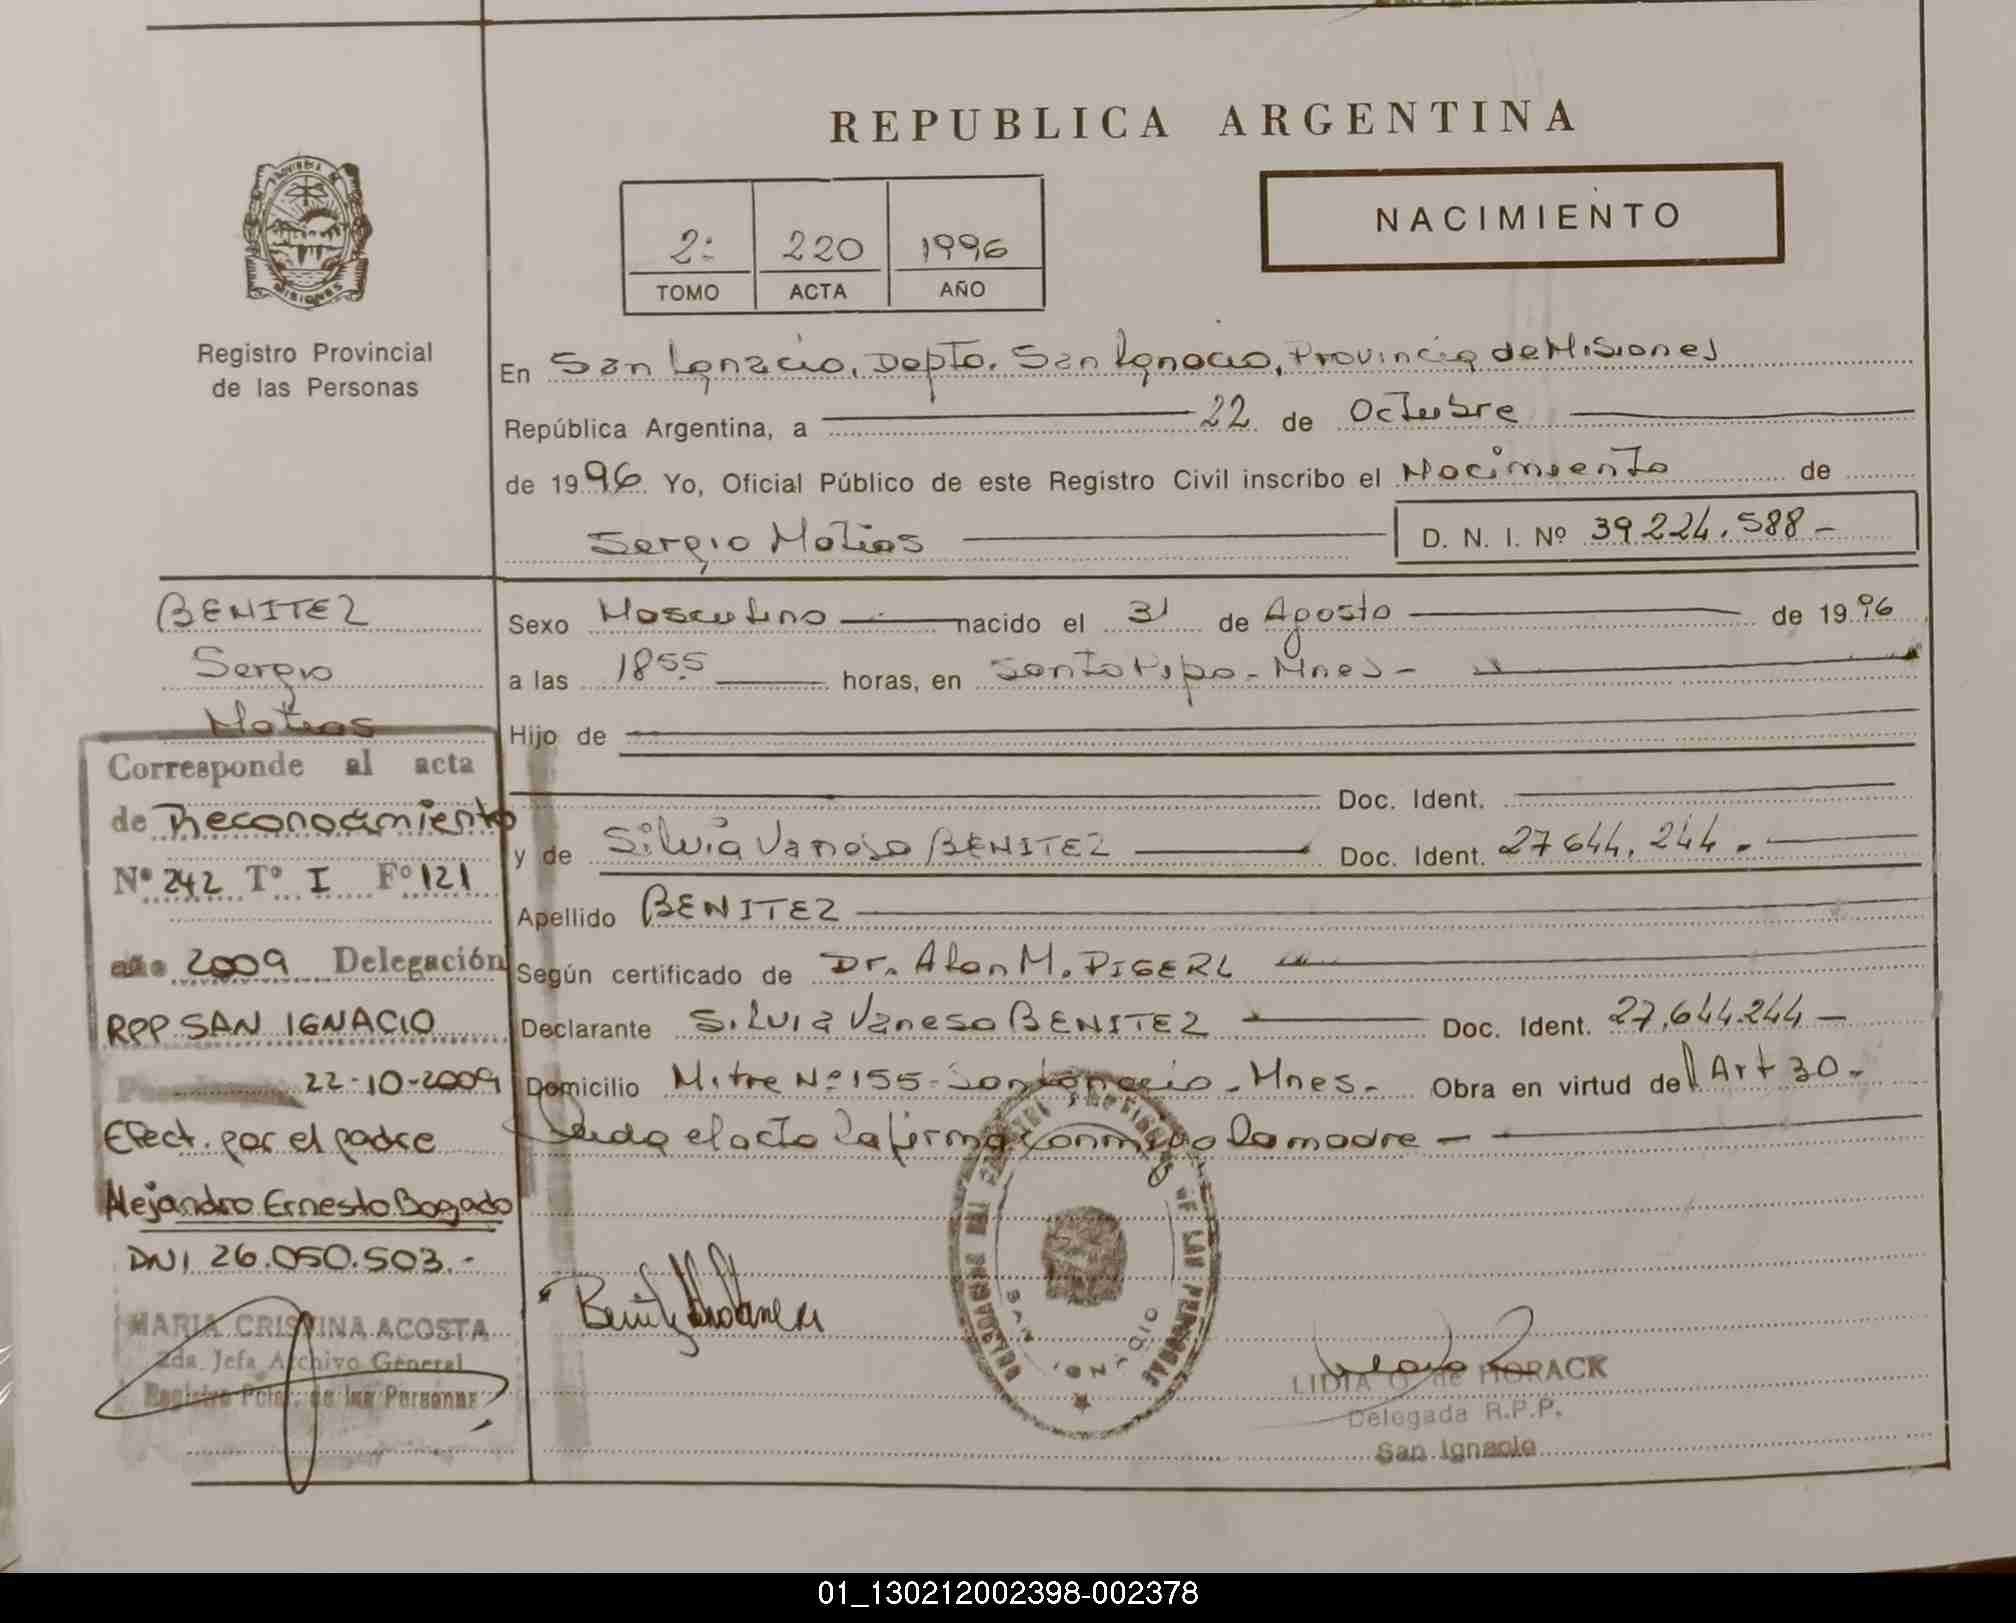 REPUBLICA ARGENTINA
NACIMIENTO
2: 220 1996
TOMO ACTA AÑO
PROVINCIA DE
MISIONES
Registro Provincial
de las Personas
En San Ignacio, Depto. San Ignacio, Provincia de Misiones
República Argentina, a 22 de Octubre
de 1996 Yo, Oficial Público de este Registro Civil inscribo el Nacimiento de
Sergio Matias D. N. I. Nº 39.224.588 -
BENITEZ
Sergio
Matias
Sexo Masculino nacido el 31 de Agosto de 1996
a las 1855 horas, en Santo Pipo - Mnes -
Hijo de
Doc. Ident.
y de Silvia Vanesa BENITEZ Doc. Ident. 27.644.244.-
Apellido BENITEZ
Según certificado de Dr. Alan M.
Declarante Silvia Vanesa BENITEZ Doc. Ident. 27.644.244 -
Domicilio Mitre Nº 155 - San Ignacio - Mnes - Obra en virtud del Art 30 -
Leida el acta la firma conmigo la madre -
Corresponde al acta
de Reconocimiento
Nº 242 Tº I Fº 121
año 2009 Delegación
RPP SAN IGNACIO
22-10-2009
Efect. por el padre
Alejandro Ernesto Bogado
DNI 26.050.503.-
MARIA CRISTINA ACOSTA
2da. Jefa Archivo General
Registro Pcial. de las Personas
DE LAS PERSONAS
SAN IGNACIO
LIDIA O. de HORACK
Delegada R.P.P.
San Ignacio
01_130212002398-002378